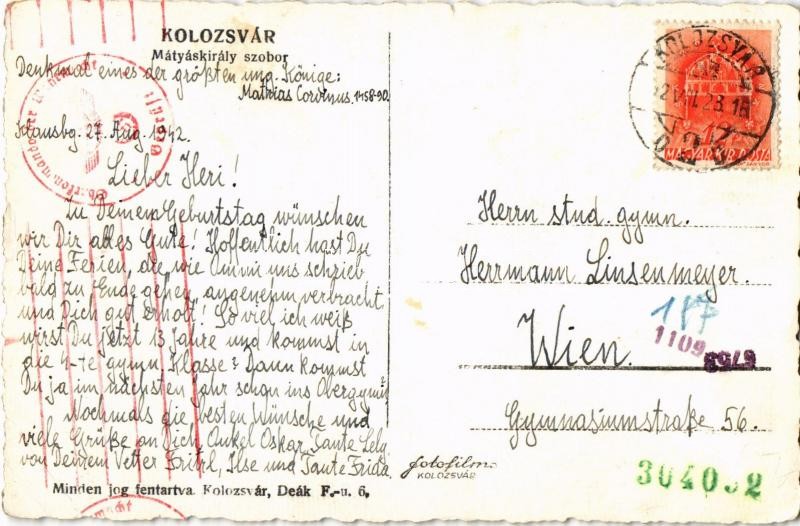 KOLOZSVÁR
Mátyáskirály szobor
Denkmal eines der größten ung. Könige:
Mathias Corvinus. 1458-90.
Klausbg. 27. Aug. 1942.
Lieber Heri!
Zu Deinem Geburtstag wünschen
wir Dir alles Gute! Hoffentlich hast Du
Deine Ferien, die, wie Ommi uns schrieb
bald zu Ende gehen, angenehm verbracht
und Dich gut erholt! So viel ich weiß
wirst Du jetzt 13 Jahre und kommst in
die 4-te gymn. Klasse? Dann kommst
Du ja im nächsten Jahr schon ins Obergymn.
Nochmals die besten Wünsche und
viele Grüße an Dich, Onkel Oskar, Tante Lely
von Deinem Vetter Fritzl, Ilse und Tante Frida.
Minden jog fentartva. Kolozsvár, Deák F.-u. 6.
KOLOZSVÁR
MAGYAR KIR. POSTA
Herrn stud. gymn.
Herrmann Linsenmeyer.
Wien.
Gymnasiumstraße 56.
1109
8579
fotofilm
KOLOZSVÁR
304032
Oberkommando der Wehrmacht
Geprüft